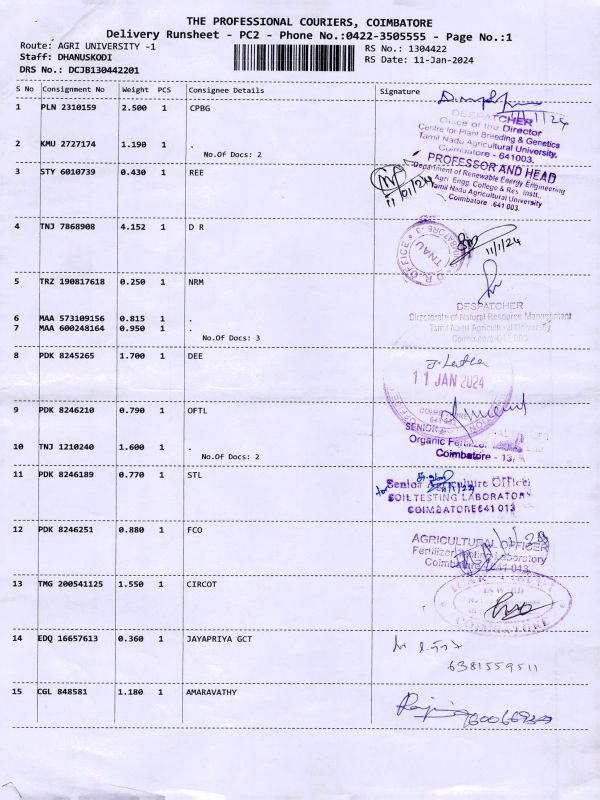 THE PROFESSIONAL COURIERS, COIMBATORE
Delivery Runsheet - PC2 - Phone No.:0422-3505555 - Page No.:1
Route: AGRI UNIVERSITY -1 RS No.: 1304422
Staff: DHANUSKODI RS Date: 11-Jan-2024
DRS No.: DCJB130442201
S No Consignment No Weight PCS Consignee Details Signature
1 PLN 2310159 2.500 1 CPBG
11/1/24
DESPATCHER
Office of the Director
Centre for Plant Breeding & Genetics
Tamil Nadu Agricultural University,
Coimbatore - 641003.
2 KMU 2727174 1.190 1 .
No.Of Docs: 2
3 STY 6010739 0.430 1 REE
11/01/24
PROFESSOR AND HEAD
Department of Renewable Energy Engineering
Agri. Engg. College & Res. Instt.,
Tamil Nadu Agricultural University
Coimbatore 641 003.
4 TNJ 7868908 4.152 1 D R
D.R. OFFICE TNAU
11/1/24
5 TRZ 190817618 0.250 1 NRM
DESPATCHER
Directorate of Natural Resource Management
Tamil Nadu Agricultural University
Coimbatore
6 MAA 573109156 0.815 1 .
7 MAA 600248164 0.950 1 .
No.Of Docs: 3
8 PDK 8245265 1.700 1 DEE
11 JAN 2024
9 PDK 8246210 0.790 1 OFTL
SENIOR
Organic Fertilizer
Coimbatore - 13.
10 TNJ 1210240 1.600 1 .
No.Of Docs: 2
11 PDK 8246189 0.770 1 STL
for Senior Agriculture Officer
SOIL TESTING LABORATORY
COIMBATORE 641 013
12 PDK 8246251 0.880 1 FCO
AGRICULTURAL OFFICER
Fertilizer Testing Laboratory
Coimbatore 641 013
13 TMG 200541125 1.550 1 CIRCOT
INWARD
COIMBATORE
14 EDQ 16657613 0.360 1 JAYAPRIYA GCT
6381559511
15 CGL 848581 1.180 1 AMARAVATHY